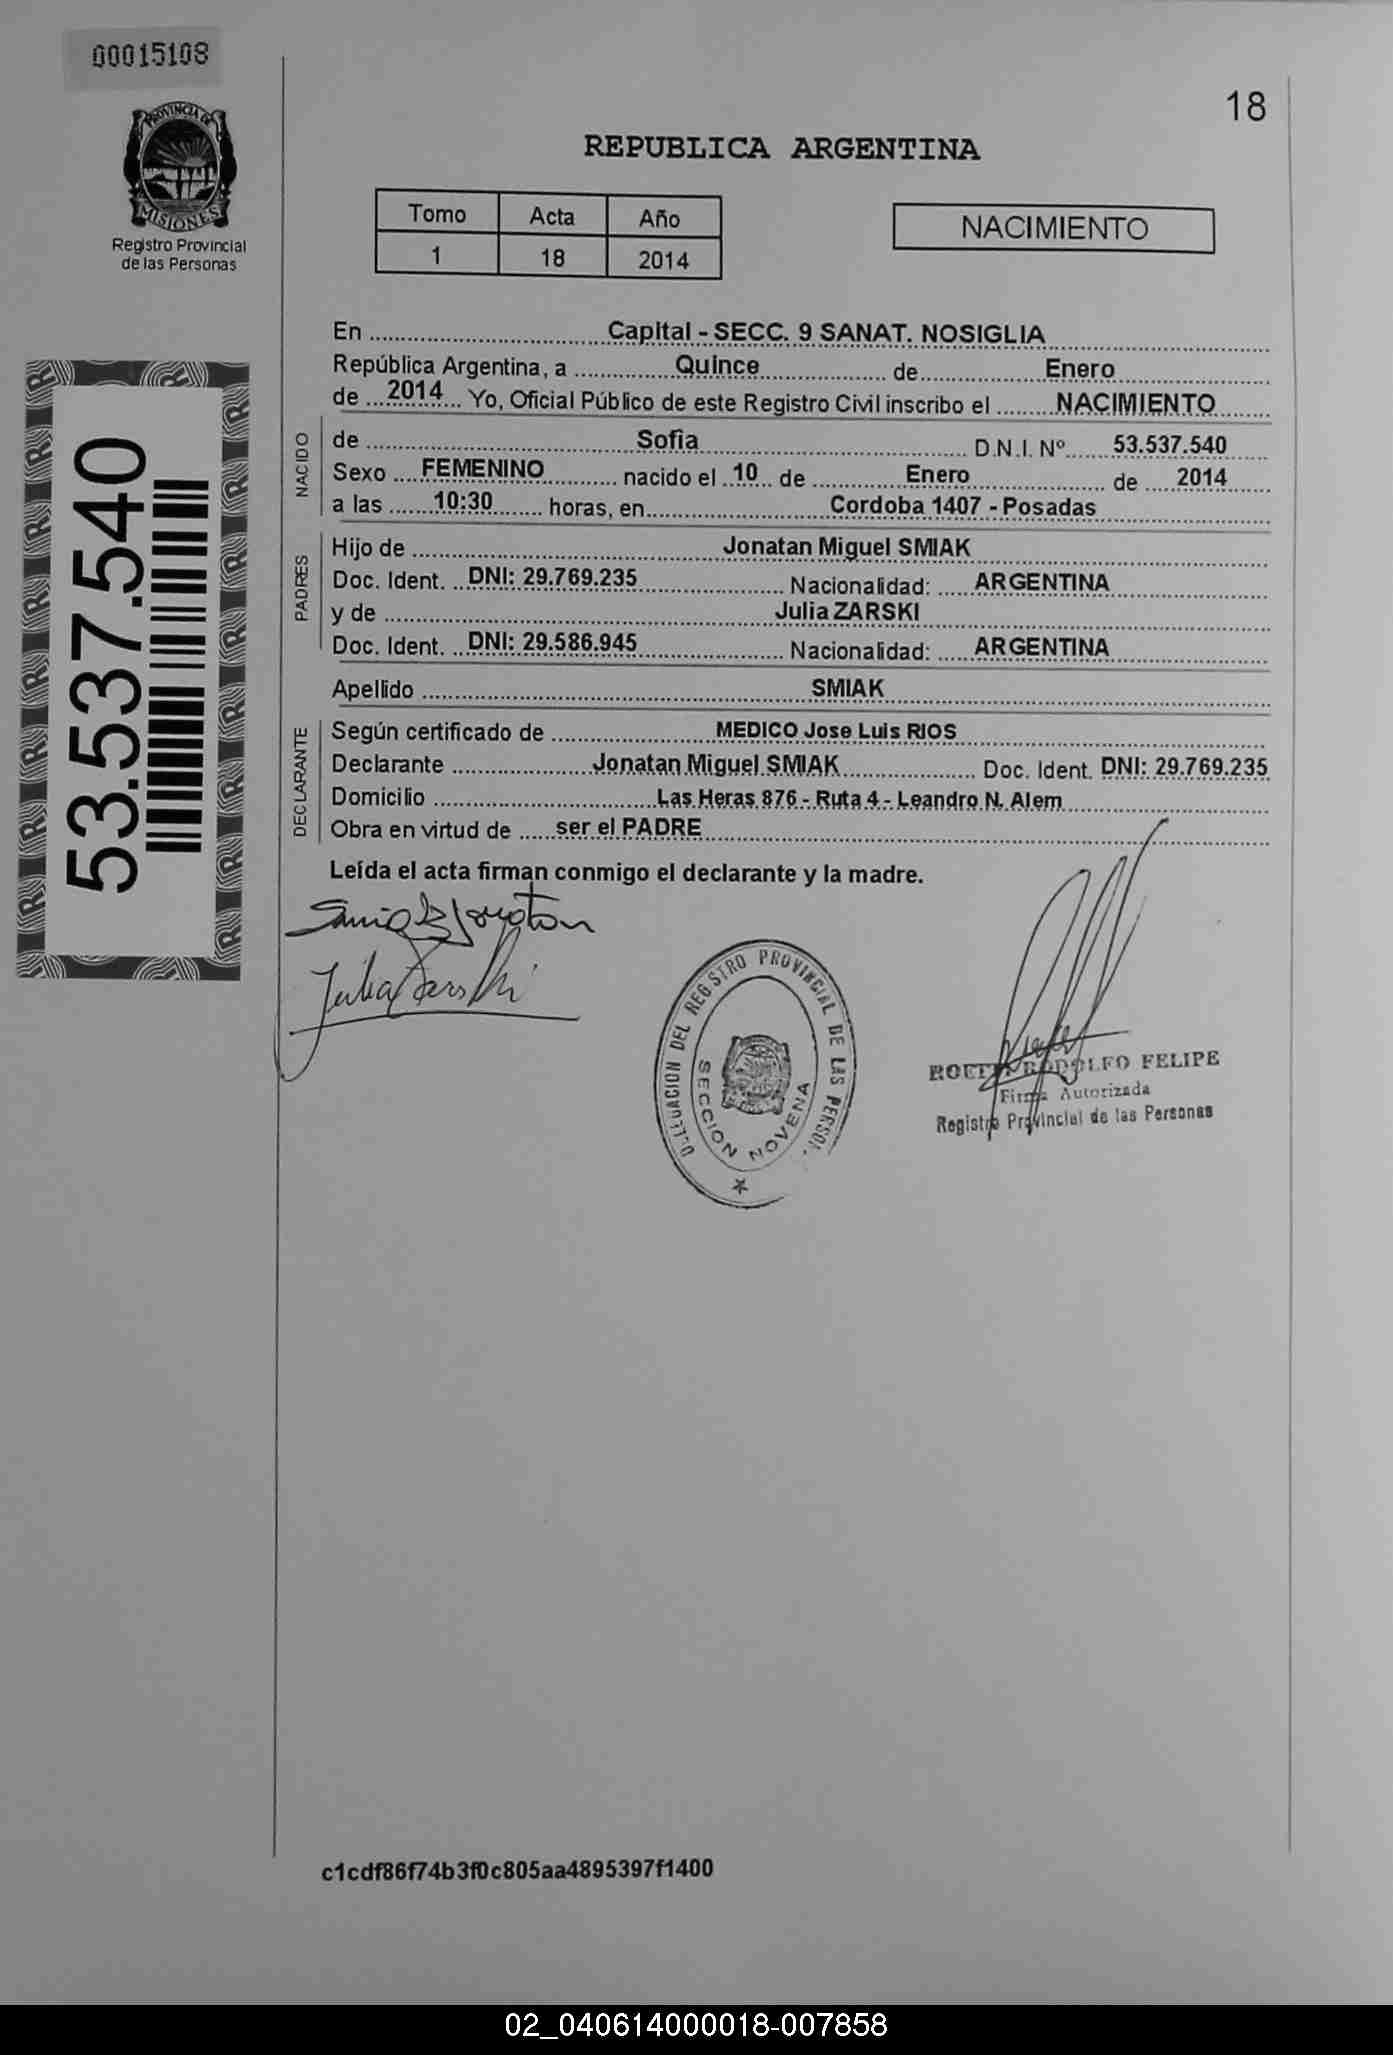 00015108
18
PROVINCIA DE
MISIONES
Registro Provincial
de las Personas
REPUBLICA ARGENTINA
Tomo Acta Año
1 18 2014
NACIMIENTO
En Capital - SECC. 9 SANAT. NOSIGLIA
República Argentina, a Quince de Enero
de 2014 Yo, Oficial Público de este Registro Civil inscribo el NACIMIENTO
NACIDO
de Sofia D.N.I. Nº 53.537.540
Sexo FEMENINO nacido el 10 de Enero de 2014
a las 10:30 horas, en Cordoba 1407 - Posadas
PADRES
Hijo de Jonatan Miguel SMIAK
Doc. Ident. DNI: 29.769.235 Nacionalidad: ARGENTINA
y de Julia ZARSKI
Doc. Ident. DNI: 29.586.945 Nacionalidad: ARGENTINA
Apellido SMIAK
DECLARANTE
Según certificado de MEDICO Jose Luis RIOS
Declarante Jonatan Miguel SMIAK Doc. Ident. DNI: 29.769.235
Domicilio Las Heras 876 - Ruta 4 - Leandro N. Alem
Obra en virtud de ser el PADRE
Leída el acta firman conmigo el declarante y la madre.
53.537.540
Julia Zarski
DELEGACION DEL REGISTRO PROVINCIAL DE LAS
SECCION NOVENA
RODOLFO FELIPE
Firma Autorizada
Registro Provincial de las Personas
c1cdf86f74b3f0c805aa4895397f1400
02_040614000018-007858